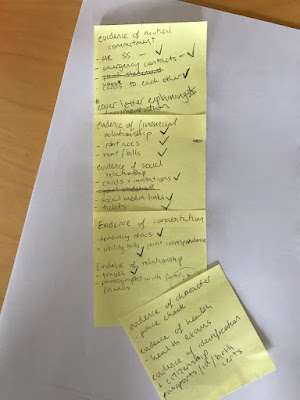 evidence of mutual
commitment
- HR SS - ✓
- emergency contacts - ✓
- joint statement
- cards to each other ✓
* cover letter explaining
evidence of financial
relationship ✓
- joint accs ✓
- rent/bills ✓
evidence of social
relationship
- cards + invitations ✓
- joint statement
- social media links ✓
- tickets ✓
Evidence of cohabitation
- tenancy docs ✓
- utility bills, joint correspondence
Evidence of relationship
- travel ✓
- photographs with family +
friends
evidence of character
- police check
evidence of health
- health exams
evidence of identification
+ citizenship
passports/id/birth
certs